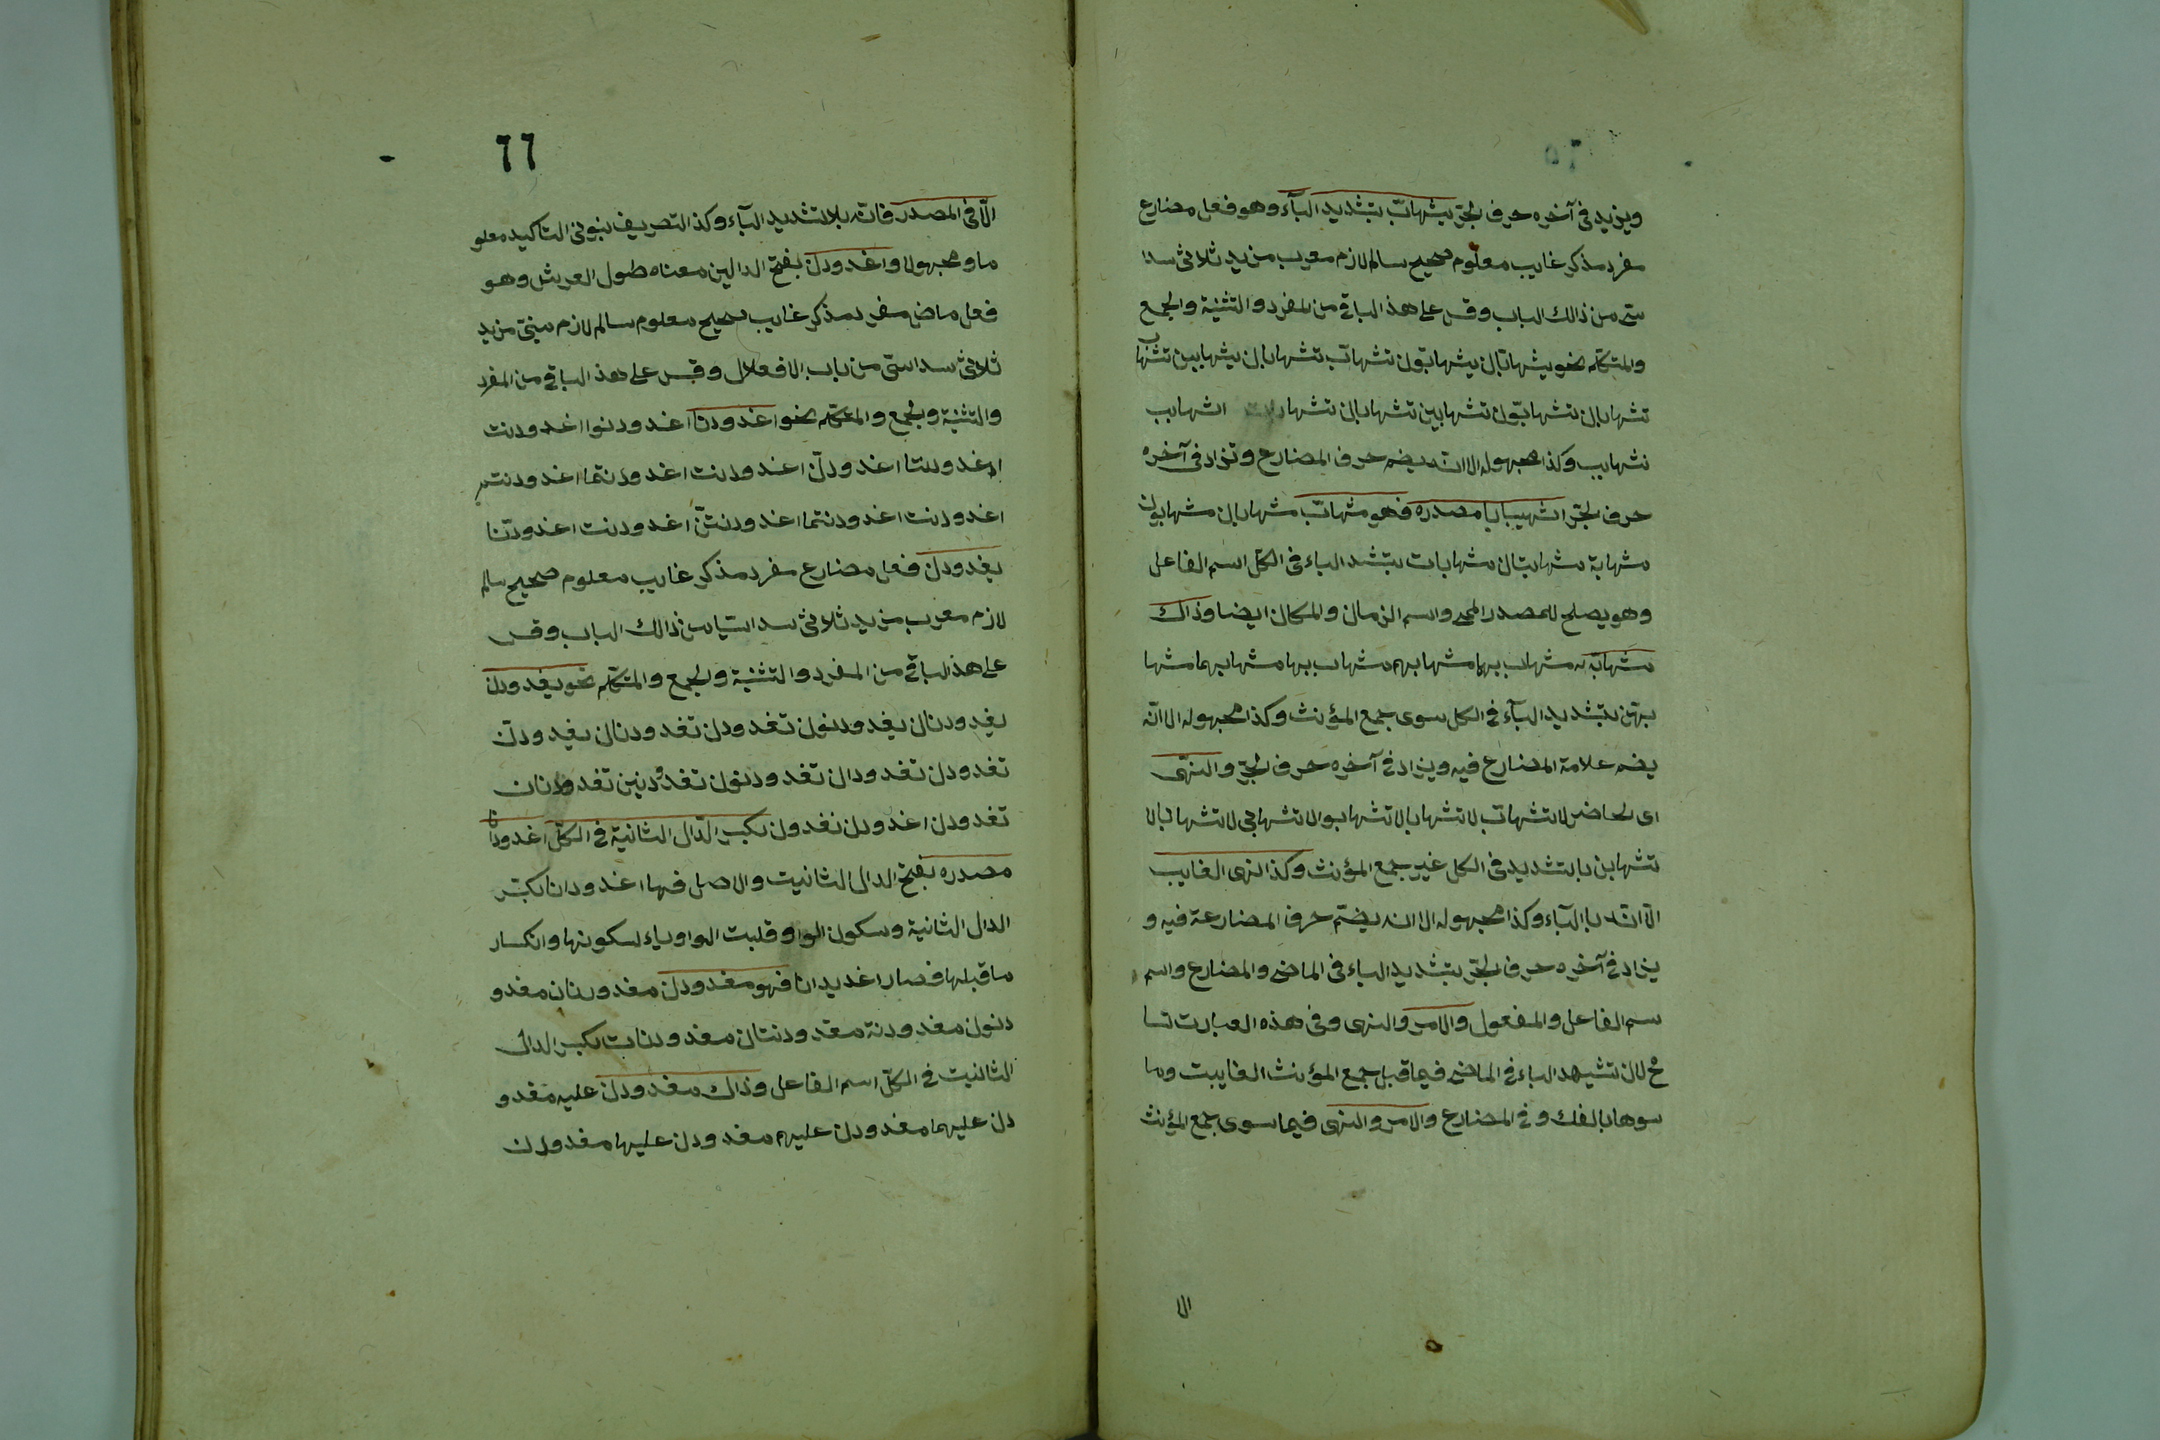 ٦٥
ويزيد في آخره حرف الجرّ يشهابّ بتشديد الباء وهو فعل مضارع
مفرد مذكر غايب معلوم صحيح سالم لازم معرب مزيد ثلاثى سدا
ستى من ذالك الباب وقس على هذ الباقى من المفرد والتثنية والجمع
والمتكلم نحو يشهابّان يشهابّون تشهابّ تشهابان يشهاببن تشهاب
تشهابان تشهابّون تشهابين تشهابان تشهاببن اشهابب
نشهابب وكذا مجهوله الا انه يضم حرف المضارع وتزاد فى آخره
حرف الجرّ اشهيبابا مصدره فهو مشهابّ مشهابان مشهابون
مشهابة مشهابتان مشهابات بتشد الباء فى الكل اسم الفاعل
وهو يصلح للمصدر الميمى واسم الزمان والمكان ايضا وذاك
مشهابّ به مشهاب بهما مشهاب بهم مشهاب بها مشهاب بهما مشها
بهنّ بتشديد الباء فى الكل سوى جمع المؤنث وكذا مجهوله الا انّه
يضم علامة المضارع فيه ويزاد فى آخره حرف الجرّ والنهى
اى الحاضر لا تشهابّ لا تشهابا لا تشهابوا لا تشهابى لا تشهابا لا
تشهاببن بالتشديد فى الكل غير جمع المؤنث وكذا النهى الغايب
الّا انّه بالياء وكذا مجهوله الا انه يضمّ حرف المضارعة فيه و
يزاد فى آخره حرف الجرّ بتشديد الباء فى الماضى والمضارع واسم
سم الفاعل والمفعول والامر والنهى وفى هذه العبارت تسا
مح لان تشيدد الباء فى الماضى فيما قبل جمع المؤنث الغايبت وما
سوها بالفك وفى المضارع والامر والنهى فيما سوى جمع المؤنث
الا
٦٦
الّا فى المصدر فانّه بلا تشديد الباء وكذ التصريف بنونى التاكيد معلو
ما ومجهولا واغدودن بفتح الدالين معناه طول العريش وهو
فعل ماض مفرد مذكر غايب صحيح معلوم سالم لازم مبنىّ مزيد
ثلاثى سداستى من باب الافعلال وقس على هذ الباقى من المفرد
والتثنية والجمع والمتكلم نحو اغدودنا اغدودنوا اغدودنت
اغدودنتا اغدودنّ اغدودنت اغدودنتما اغدودنتم
اغدودنت اغدودنتما اغدودنتنّ اغدودنت اغدودنّا
يغدودن فعل مضارع مفرد مذكر غايب معلوم صحيح سالم
لازم معرب مزيد ثلاثى سداستيا من ذالك الباب وقس
على هذ الباقى من المفرد والتثنية والجمع والمتكلم نحو يغدودن
يغدودنان يغدودنون تغدودن تغدودنان يغدودنّ
تغدودن تغدودنان تغدودنون تغدودنين تغدودنان
تغدودن اغدودن نغدودن بكسر الدّال الثانية فى الكلّ اغدودانا
مصدره بفتح الدال الثانيت والاصل فيها اغدودانا بكسر
الدال الثانية وسكون الواو قلبت الواو ياء لسكونها وانكسار
ما قبلها فصار اغديدانا فهو مغدودن مغدودنان مغدو
دنون مغدودنة مغدودنتان مغدودنات بكسر الدال
الثانيت فى الكلّ اسم الفاعل وذاك مغدودن عليه مغدو
دن عليهما مغدودن عليهم مغدودن عليها مغدودن